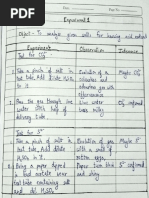 Experiment 1
Object - To analyse given salt for
Experiment Observation Inference
Test for CO3 2-
1. Take a pinch of salt in test tube, Add dilute H2SO4
Evolution of a colourless and odourless gas with effervescence
Maybe CO3 2-
2. Pass the gas through lime water with help of delivery tube.
lime water turns milky.
CO3 2- confirmed
Test for S2-
1. Take a pinch of salt in test tube, Add dilute H2SO4
Evolution of gas with smell of rotten
Maybe S2-
2. Bring a paper dipped in lead acetate near test tube containing salt and dil H2SO4
Paper turns
S2- confirmed